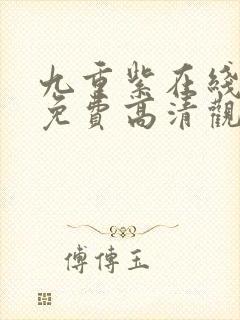 九重紫在綫
免費高清觀
傅傳玉